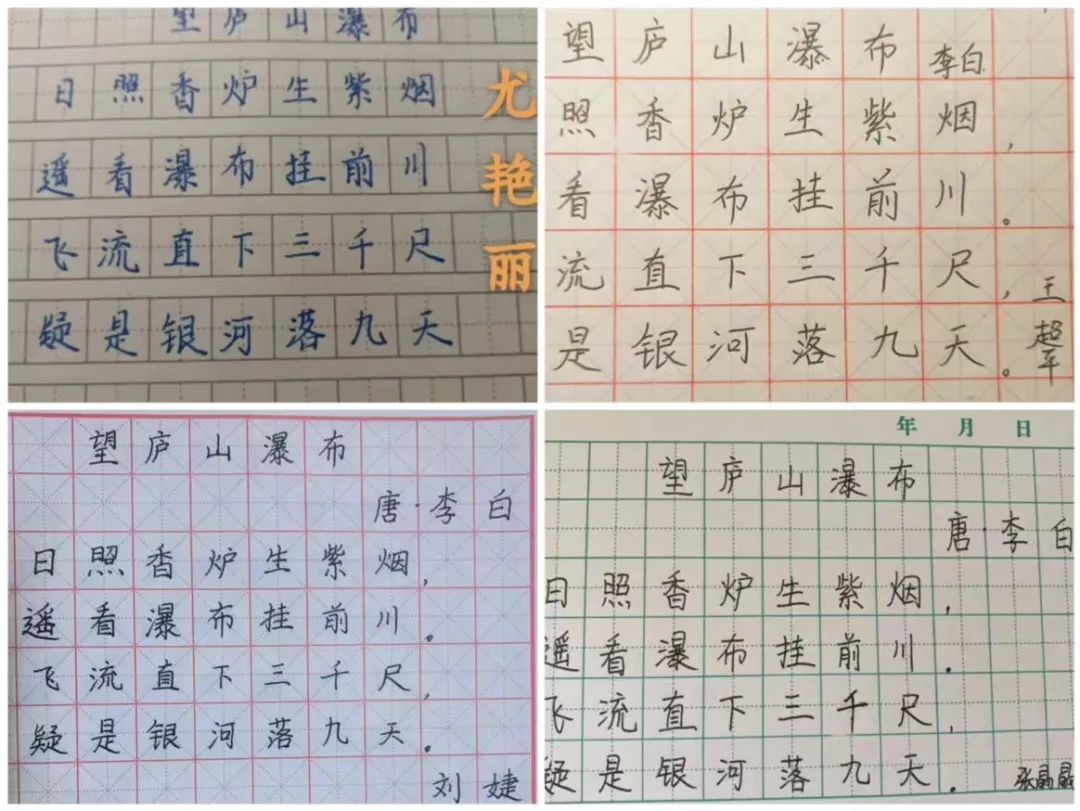 望庐山瀑布
日照香炉生紫烟
遥看瀑布挂前川
飞流直下三千尺
疑是银河落九天
尤艳丽
望庐山瀑布 李白
照香炉生紫烟，
看瀑布挂前川。
流直下三千尺，
是银河落九天。
王超平
望庐山瀑布
唐·李白
日照香炉生紫烟，
遥看瀑布挂前川。
飞流直下三千尺，
疑是银河落九天。
刘婕
年 月 日
望庐山瀑布
唐·李白
日照香炉生紫烟，
遥看瀑布挂前川．
飞流直下三千尺，
疑是银河落九天．
张晶晶